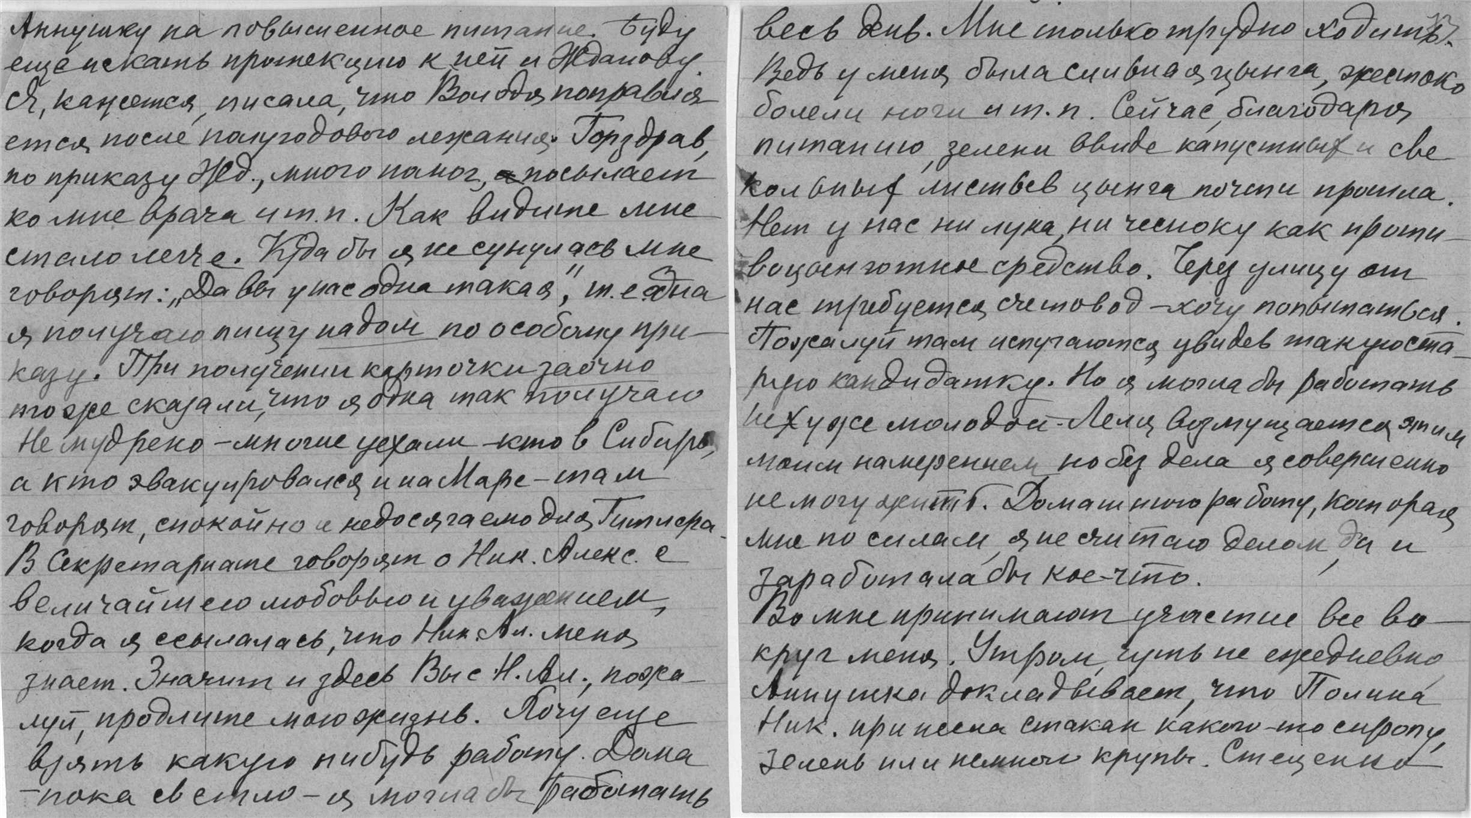 Аннушку на повышенное питание. Буду
еще искать протекцию к ней и Жданову.
Я, кажется, писала, что Володя поправля-
ется после полугодового лежания. Горздрав,
по приказу Жд., много помог, посылает
ко мне врача и т.п. Как видите мне
стало легче. Куда бы я не сунулась мне
говорят: „Да вы у нас одна такая", т.е. одна
я получаю пищу на дом по особому при-
казу. При получении карточки заочно
тоже сказали, что я одна так получаю
Не мудрено – многие уехали – кто в Сибирь,
а кто эвакуировался и на Марс – там
говорят, спокойно и недосягаемо для Гитлера.
В Секретариате говорят о Ник. Алекс. с
величайшею любовью и уважением,
когда я ссылалась, что Ник. Ал. меня
знает. Значит и здесь Вы с Н. Ал., пожа-
луй, продлите мою жизнь. Хочу еще
взять какую нибудь работу. Дома
– пока светло – я могла бы работать
весь день. Мне только трудно ходить.
Ведь у меня была сильная цынга, жестоко
болели ноги и т.п. Сейчас, благодаря
питанию, зелени ввиде капустных и све
кольных листьев цынга почти прошла.
Нет у нас ни лука, ни чесноку как проти-
воцынготное средство. Через улицу от
нас требуется счетовод – хочу попытаться.
Пожалуй там испугаются, увидев такую ста-
рую кандидатку. Но я могла бы работать
не хуже молодой – Леля возмущается этим
моим намерением, но без дела я совершенно
не могу жить. Домашнюю работу, которая
мне по силам, я не считаю делом, да и
заработала бы кое-что.
Во мне принимают участие все во-
круг меня. Утром, чуть не ежедневно
Аннушка докладывает, что Полина
Ник. принесла стакан какого-то сиропу,
зелень или немного крупы. Стеценко